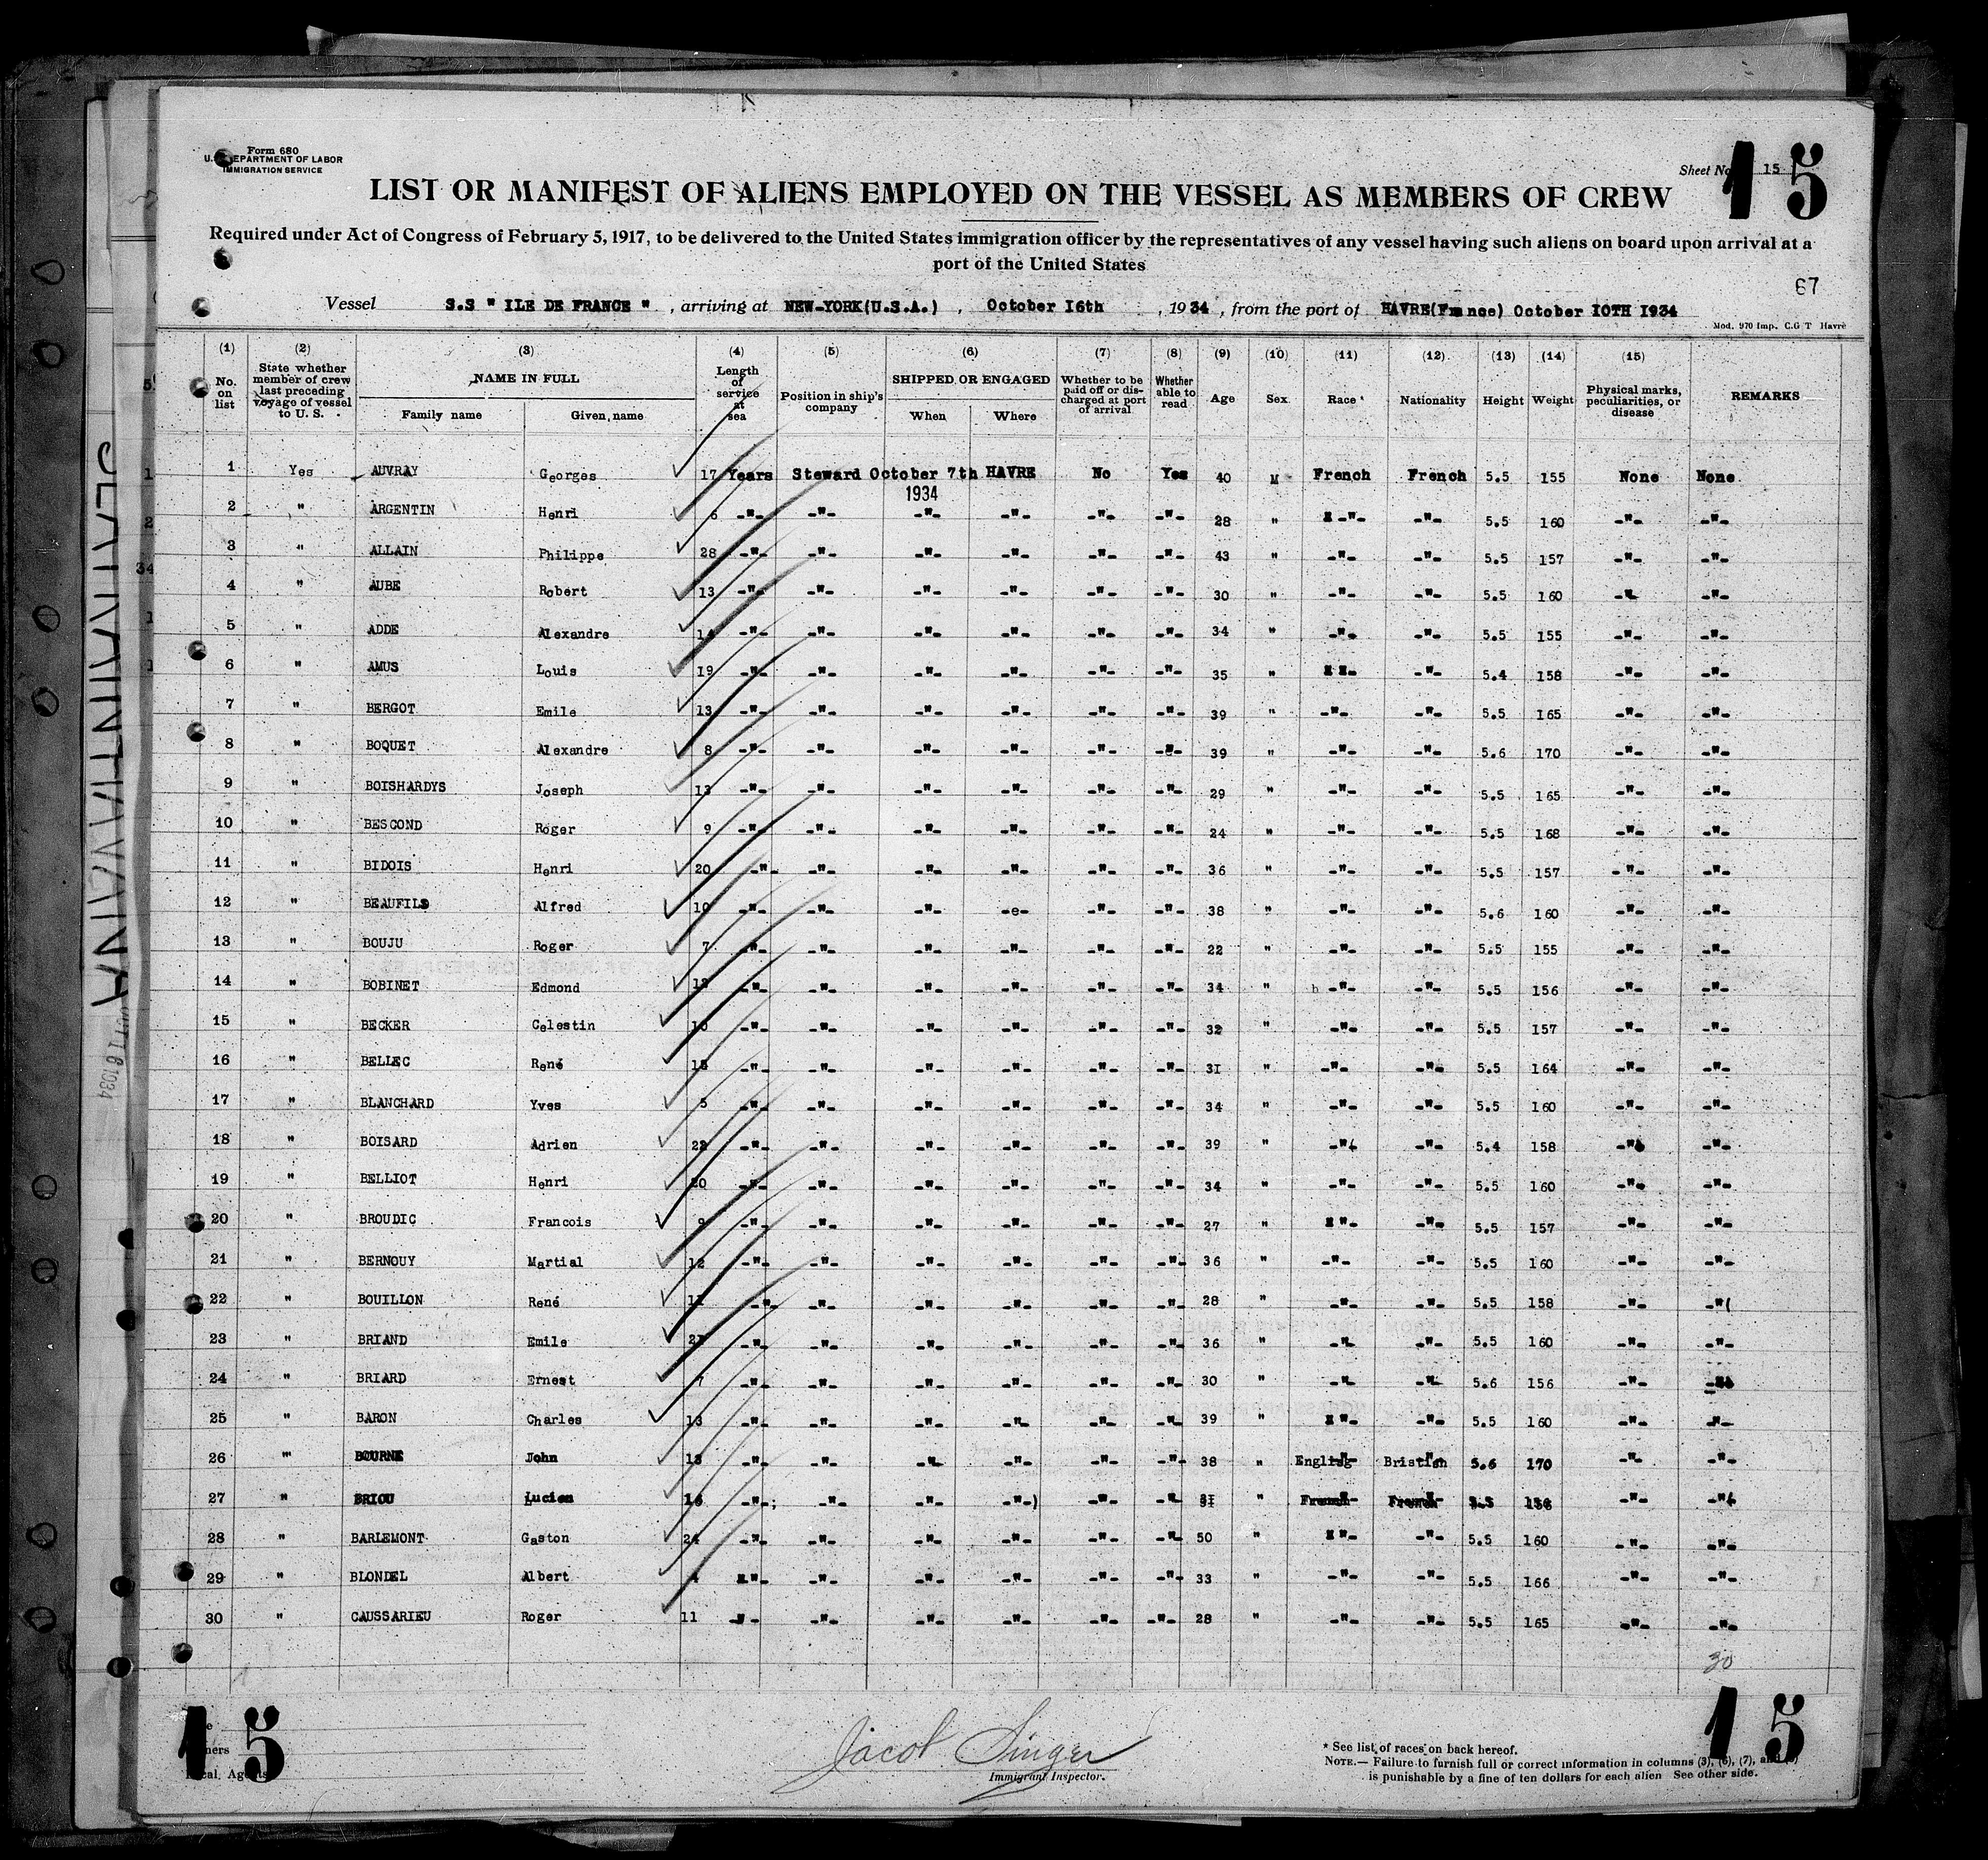 Form 680
U. S. DEPARTMENT OF LABOR
IMMIGRATION SERVICE
Sheet No. 15
15
LIST OR MANIFEST OF ALIENS EMPLOYED ON THE VESSEL AS MEMBERS OF CREW
Required under Act of Congress of February 5, 1917, to be delivered to the United States immigration officer by the representatives of any vessel having such aliens on board upon arrival at a
port of the United States
67
Vessel S.S " ILE DE FRANCE " , arriving at NEW-YORK(U.S.A.) , October 16th , 1934 , from the port of HAVRE(France) October 10TH 1934
Mod. 970 Imp. C.G T Havre
(1) (2) (3) (4) (5) (6) (7) (8) (9) (10) (11) (12) (13) (14) (15)
No. on list State whether member of crew last preceding voyage of vessel to U. S. NAME IN FULL Family name Given name Length of service at sea Position in ship's company SHIPPED OR ENGAGED When Where Whether to be paid off or discharged at port of arrival Whether able to read Age Sex Race * Nationality Height Weight Physical marks, peculiarities, or disease REMARKS
1 Yes AUVRAY Georges 17 Years Steward October 7th HAVRE No Yes 40 M French French 5.5 155 None None
1934
2 " ARGENTIN Henri 6 -"- -"- -"- -"- -"- -"- 28 " -"- -"- 5.5 160 -"- -"-
3 " ALLAIN Philippe 28 -"- -"- -"- -"- -"- -"- 43 " -"- -"- 5.5 157 -"- -"-
4 " AUBE Robert 13 -"- -"- -"- -"- -"- -"- 30 " -"- -"- 5.5 160 -"- -"-
5 " ADDE Alexandre 14 -"- -"- -"- -"- -"- -"- 34 " -"- -"- 5.5 155 -"- -"-
6 " AMUS Louis 19 -"- -"- -"- -"- -"- -"- 35 " -"- 5.4 158 -"- -"-
7 " BERGOT Emile 13 -"- -"- -"- -"- -"- -"- 39 " -"- -"- 5.5 165 -"- -"-
8 " BOQUET Alexandre 8 -"- -"- -"- -"- -"- -"- 39 " -"- -"- 5.6 170 -"- -"-
9 " BOISHARDYS Joseph 13 -"- -"- -"- -"- -"- -"- 29 " -"- -"- 5.5 165 -"- -"-
10 " BESCOND Roger 9 -"- -"- -"- -"- -"- -"- 24 " -"- -"- 5.5 168 -"- -"-
11 " BIDOIS Henri 20 -"- -"- -"- -"- -"- -"- 36 " -"- -"- 5.5 157 -"- -"-
12 " BEAUFILS Alfred 10 -"- -"- -"- -e- -"- -"- 38 " -"- -"- 5.6 160 -"- -"-
13 " BOUJU Roger 7 -"- -"- -"- -"- -"- -"- 22 " -"- -"- 5.5 155 -"- -"-
14 " BOBINET Edmond -"- -"- -"- -"- -"- -"- 34 " h -"- -"- 5.5 156 -"- -"-
15 " BECKER Celestin 10 -"- -"- -"- -"- -"- -"- 32 " -"- -"- 5.5 157 -"- -"-
16 " BELLEC René -"- -"- -"- -"- -"- -"- 31 " -"- -"- 5.5 164 -"- -"-
17 " BLANCHARD Yves 5 -"- -"- -"- -"- -"- -"- 34 " -"- -"- 5.5 160 -"- -"-
18 " BOISARD Adrien 22 -"- -"- -"- -"- -"- -"- 39 " -"( -"- 5.4 158 -"- -"-
19 " BELLIOT Henri 20 -"- -"- -"- -"- -"- -"- 34 " -"- -"- 5.5 160 -"- -"-
20 " BROUDIC Francois 9 -"- -"- -"- -"- -"- -"- 27 " -"- -"- 5.5 157 -"- -"-
21 " BERNOUY Martial 12 -"- -"- -"- -"- -"- -"- 36 " -"- -"- 5.5 160 -"- -"-
22 " BOUILLON René 11 -"- -"- -"- -"- -"- -"- 28 " -"- -"- 5.5 158 -"- -"(
23 " BRIAND Emile 21 -"- -"- -"- -"- -"- -"- 36 " -"- -"- 5.5 160 -"- -"-
24 " BRIARD Ernest 7 -"- -"- -"- -"- -"- -"- 30 " -"- -"- 5.6 156 -"-
25 " BARON Charles 13 -"- -"- -"- -"- -"- -"- 39 " -"- -"- 5.5 160 -"- -"-
26 " BOURNE John -"- -"- -"- -"- -"- -"- 38 " English Bristish 5.6 170 -"- -"-
27 " BRIOU Lucien -"-; -"- -"- -"-) -"- -"- 31 " French French -"-
28 " BARLEMONT Gaston 24 -"- -"- -"- -"- -"- -"- 50 " -"- -"- 5.5 160 -"- -"-
29 " BLONDEL Albert 4 -"- -"- -"- -"- -"- -"- 33 " -"- -"- 5.5 166 -"- -"-
30 " CAUSSARIEU Roger 11 -"- -"- -"- -"- -"- -"- 28 " -"- -"- 5.5 165 -"- -"-
30
15
Jacob Singer
Immigrant Inspector.
* See list of races on back hereof.
NOTE.— Failure to furnish full or correct information in columns (3), (6), (7), and
is punishable by a fine of ten dollars for each alien See other side.
15